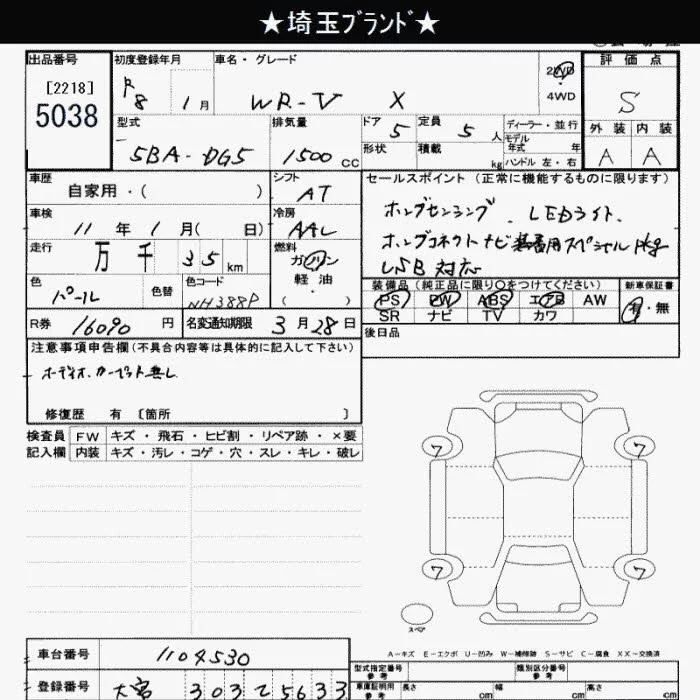 ★埼玉ブランド★
出品番号
[2218]
5038
初度登録年月 R 8 1月
車名・グレード WR-V X
2WD
4WD
評価点
S
外装 内装
A A
型式 5BA-DG5
排気量 1500 CC
ドア 5 定員 5 人
形状 積載 kg
ディーラー・並行
モデル年式 年
ハンドル 左・右
車歴 自家用・( )
シフト AT
車検 11年1月( 日)
冷房 AAC
走行 万 千 35 km
燃料 ガソリン
軽油
・
( )
色 パール 色替
色コード NH388P
R券 16090 円
名変通知期限 3月28日
セールスポイント (正常に機能するものに限ります)
ホンダセンシング . LEDライト.
ホンダコネクトナビ装着用スペシャルpkg
USB 対応
装備品 (純正品に限り○をつけてください)
PS PW ABS エアB AW
SR ナビ TV カワ
新車保証書
有・無
後日品
注意事項申告欄 (不具合内容等は具体的に記入して下さい)
オーディオ.カーペット無し
修復歴 有 〔箇所 〕
検査員 FW キズ・飛石・ヒビ割・リペア跡・×要
記入欄 内装 キズ・汚レ・コゲ・穴・スレ・キレ・破レ
7 7
7 7
スペア
A－キズ E－エクボ U－凹み W－補修跡 S－サビ C－腐食 XX－交換済
車台番号 1104530
登録番号 大宮 303 て 5633
型式指定番号 参考
類別区分番号 参考
車庫証明用 参考 長さ cm 幅 cm 高さ cm